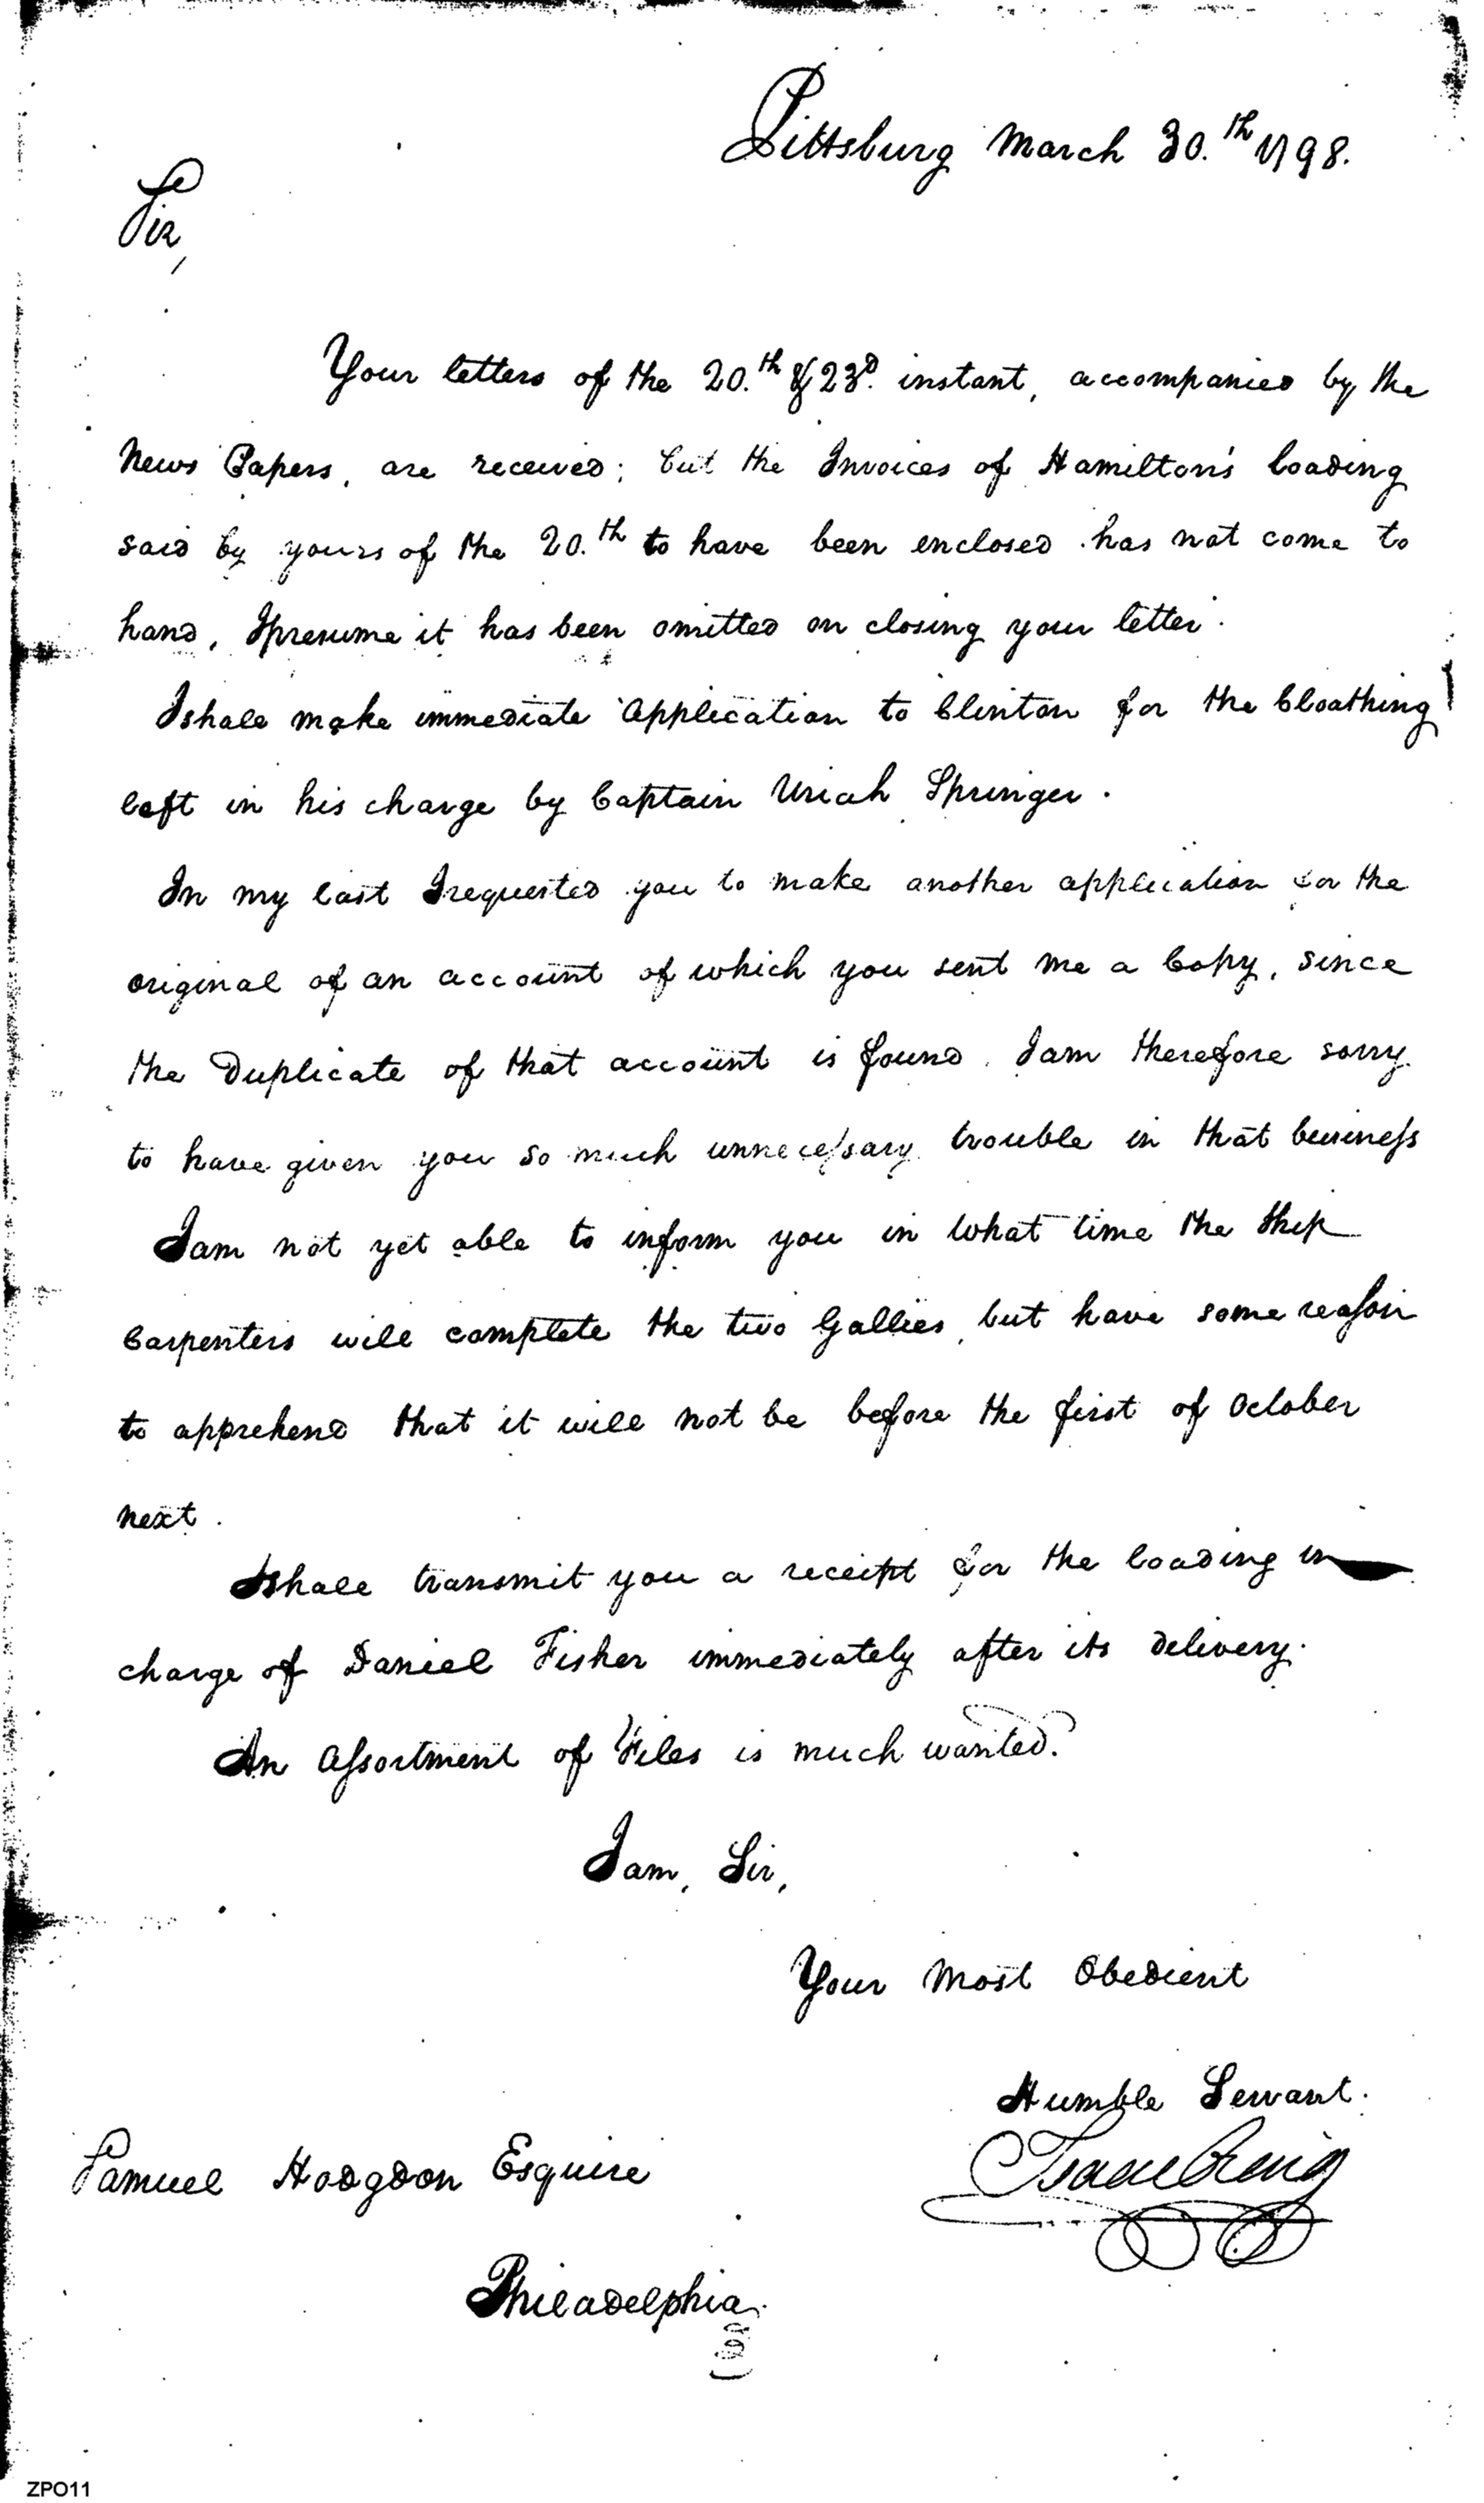 Pittsburg March 30.th 1798.
Sir,
Your letters of the 20.th & 23d. instant, accompanied by the
News Papers, are received; but the Invoices of Hamilton's loading
said by yours of the 20.th to have been enclosed has not come to
hand, I presume it has been omitted on closing your letter.
I shall make immediate Application to Clinton for the Cloathing
left in his charge by Captain Uriah Springer.
In my last I requested you to make another application for the
original of an account of which you sent me a Copy, since
the Duplicate of that account is found. I am therefore sorry
to have given you so much unnecessary trouble in that business
I am not yet able to inform you in what time the Ship
Carpenters will complete the two Gallies, but have some reason
to apprehend that it will not be before the first of October
next.
I shall transmit you a receipt for the loading in
charge of Daniel Fisher immediately after its delivery.
An Assortment of Files is much wanted.
I am, Sir,
Your Most Obedient
Humble Servant.
Isaac Craig
Samuel Hodgdon Esquire
Philadelphia.
ZPO11